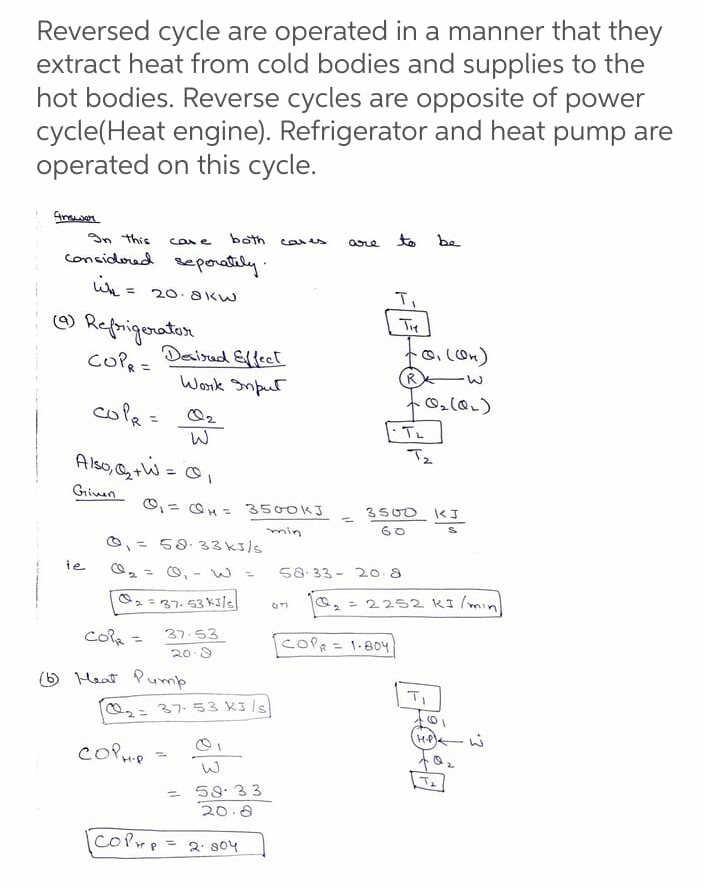 Reversed cycle are operated in a manner that they
extract heat from cold bodies and supplies to the
hot bodies. Reverse cycles are opposite of power
cycle(Heat engine). Refrigerator and heat pump are
operated on this cycle.
Answer
In this case both cases are to be
considered seperately.
Ẇ = 20.8KW
(a) Refrigerator
COP_R = Desired Effect / Work Input
COP_R = Q₂ / W
Also, Q₂ + Ẇ = Q₁
T₁
T_H
Q₁ (Q_H)
R W
Q₂ (Q_L)
T_L
T₂
Given
Q₁ = Q_H = 3500KJ / min = 3500 / 60 KJ / s
Q₁ = 58.33 KJ/s
ie Q₂ = Q₁ - W = 58.33 - 20.8
Q₂ = 37.53 KJ/s or Q₂ = 2252 KJ/min
COP_R = 37.53 / 20.8 COP_R = 1.804
(b) Heat Pump
Q₂ = 37.53 KJ/s
COP_H.P = Q₁ / W
= 58.33 / 20.8
COP_HP = 2.804
T₁
Q₁
H.P Ẇ
Q₂
T₂